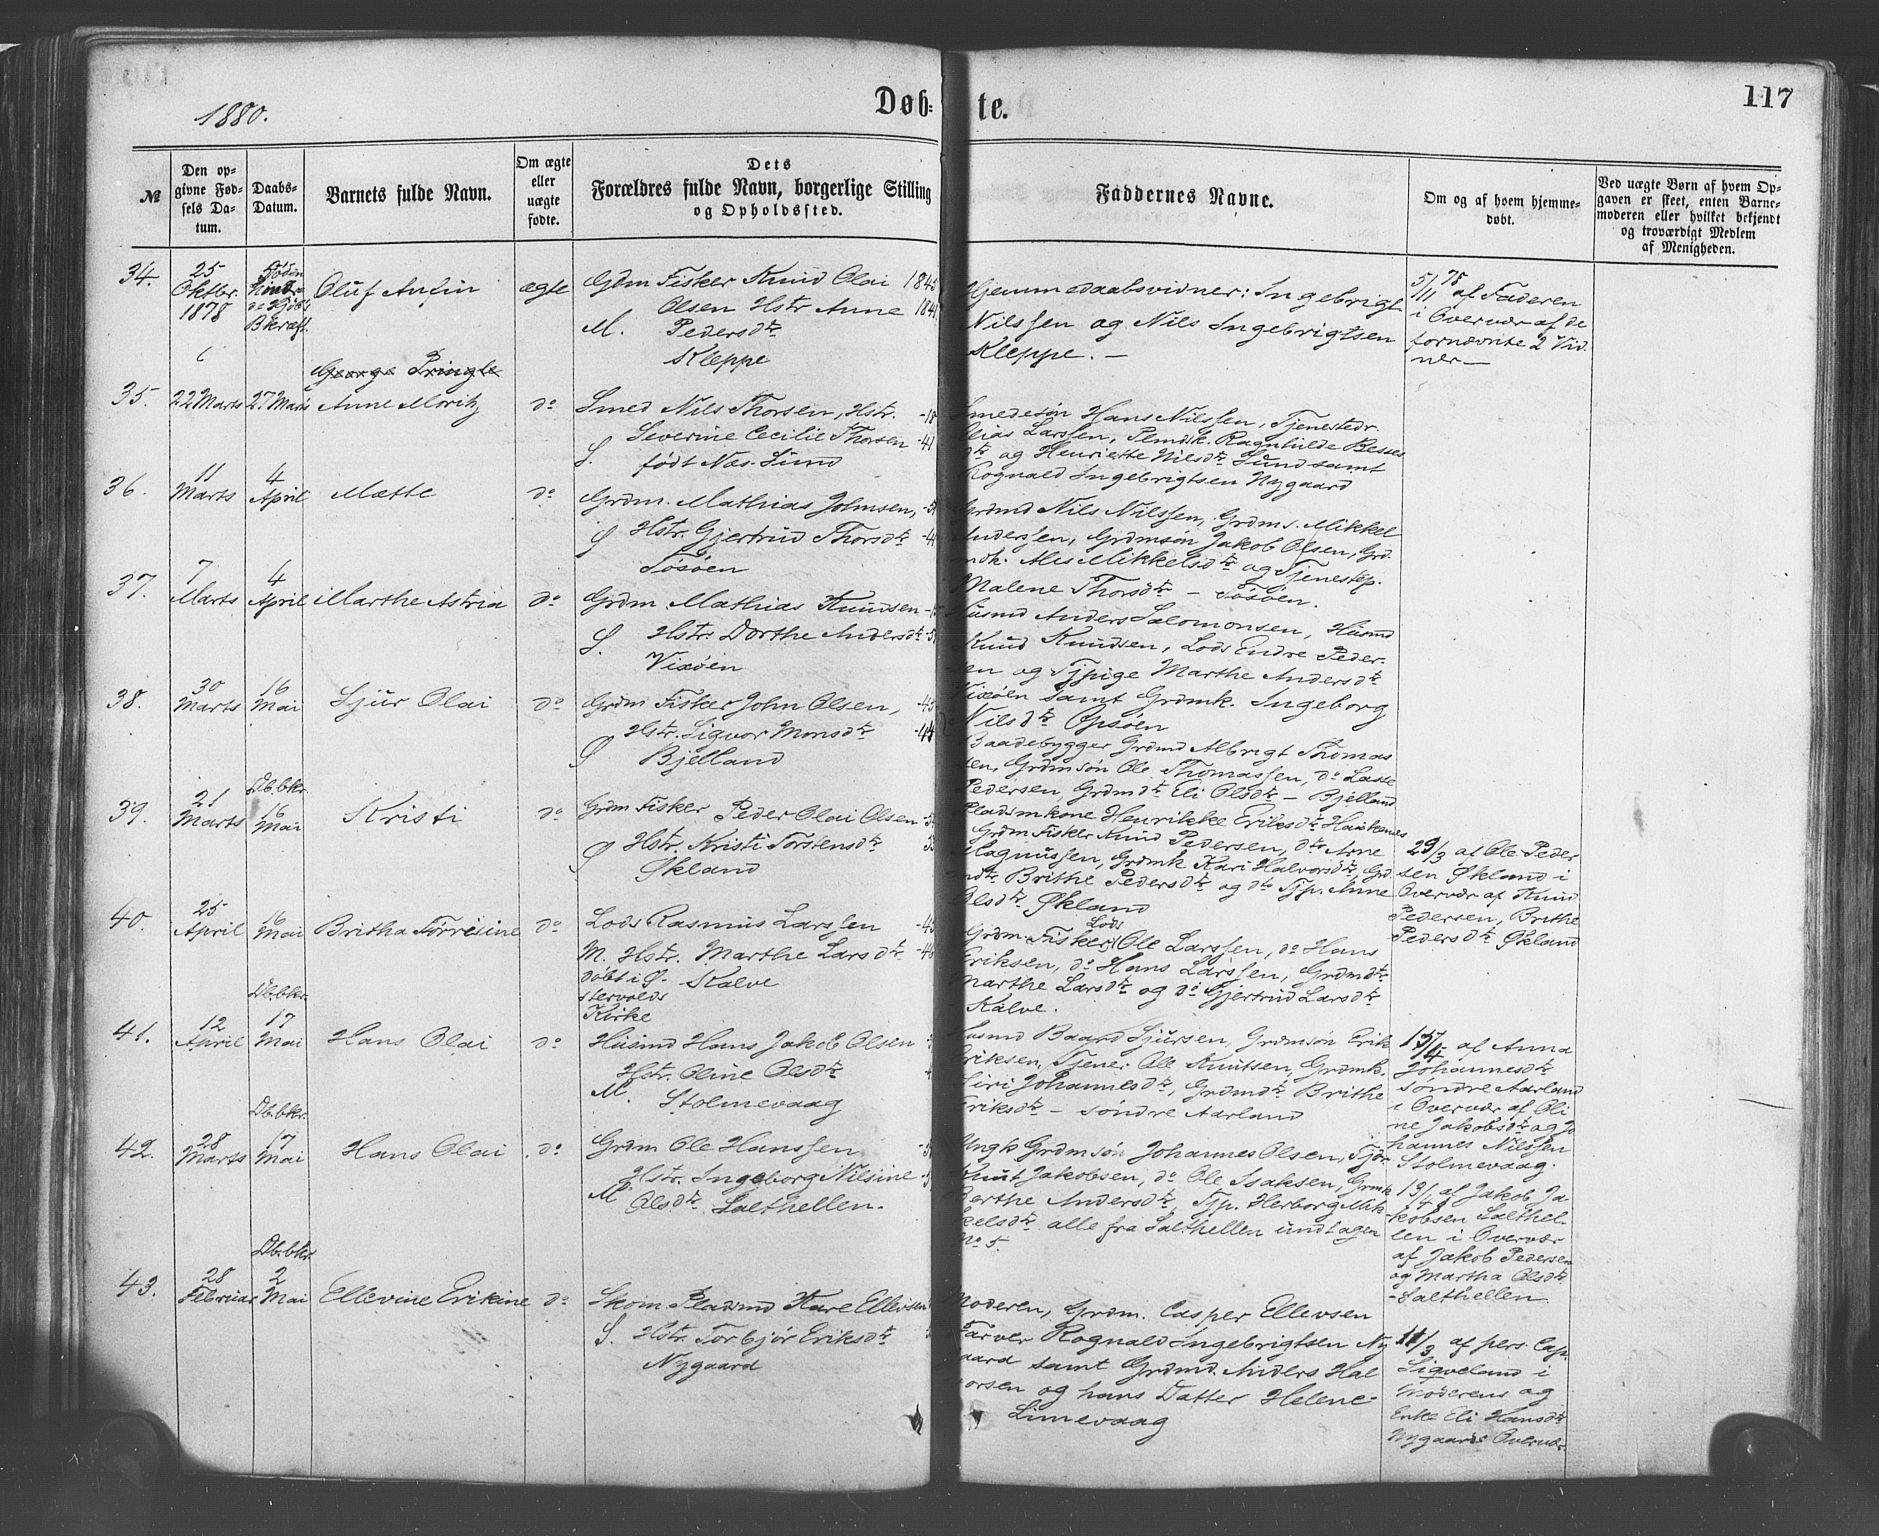 1880.
Døb-
te.
117
№
Den op-
givne Fød-
sels Da-
tum.
Daabs-
Datum.
Barnets fulde Navn.
Om ægte
eller
uægte
fødte.
Dets
Forældres fulde Navn, borgerlige Stilling
og Opholdssted.
Faddernes Navne.
Om og af hvem hjemme-
døbt.
Ved uægte Børn af hvem Op-
gaven er skeet, enten Barne-
moderen eller hvilket bekjendt
og troværdigt Medlem
af Menigheden.
34.
25
Oktbr.
1878
Bkræft.
Oluf Anfin
ægte
Grdm Fisker Knud Olai
Olsen Hstr Anne
M. Pedersdtr
Kleppe
Hjemmedaabsvidner: Ingebrigt
Nilssen og Nils Ingebrigtsen
Kleppe. —
5/11 78 af Faderen
i Overvær af de
fornævnte 2 Vid-
ner —
George Pringle
35.
22 Marts
27 Marts
Anne Moritz
do
Smed Nils Thorsen, Hstr.
Severine Cecilie Thorsen -41
S. født Næs. Sund
Smedesøn Hans Nilssen, Tjenestedr.
Elias Larssen, Pemdsk. Ragnhilde Besses
dtr og Henriette Nilsdtr Sund samt
Rognald Ingebrigtsen Nygaard
36.
11
Marts
4
April
Mætte
do
Grdm. Mathias Johnsen,
S Hstr. Gjertrud Thorsdtr
Tøsøen
Grdmd Nils Nilssen, Grdms. Mikkel
Anderssen, Grdmsøn Jakob Olsen, Grd-
mdk. Mikkelsdtr og Tjenestep.
Malene Thorsdtr — Tøsøen.
37.
7
Marts
4
April
Marthe Astria
do
Grdm Mathias Knudsen
S. Hstr. Dorthe Andersdtr
Vixøen
Husmd Anders Salomonsen, Husmd
Knud Knudsen, Lods Endre Peder-
sen og Tjpige Marthe Andersdtr
Vixøen samt Grdmk. Ingeborg
Nilsdtr Opsøen
38.
30
Marts
16
Mai
Sjur Olai
do
Grdm Fisker John Olsen, -45
Hstr. Sigvor Monsdtr -44
Ø Bjelland
Baadebygger Grdmd Albrigt Thomas
sen, Grdmsøn Ole Thomassen, do Lasse
Pedersen, Grdmdtr Eli Olsdtr — Bjelland
Pladsmkone Henrikke Eriksdtr Haukenes
39.
21
Marts
Db.bkr.
16
Mai
Kristi
do
Grdm Fisker Peder Olai Olsen
Ø Hstr. Kristi Torstensdtr
Økland
Grdm Fisker Knud Pedersen, do Arne
Magnussen, Grdmk Kari Halvorsdtr, Grd-
mdtr Brithe Pedersdtr og do Tjp. Anne
Olsdtr Økland
29/3 af Ole Peder
sen Økland i
Overvær af Knud
Pedersen, Brithe
Pedersdtr Økland
40.
25
April
16
Mai
Britha Torresine
do
Lods Rasmus Larssen -45
M. Hstr. Marthe Larsdtr -46
døbt i Ø- Kalve
stervolds
Kirke
Grdm. Fisker Lods Ole Larssen, do Hans
Eriksen, do Hans Larssen, Grdmdtr
Marthe Larsdtr og do Gjertrud Larsdtr
Kalve.
41.
12
April
Db.bkr.
17
Mai
Hans Olai
do
Husmd Hans Jakob Olsen
Hstr. Oline Olsdtr
M. Stolmevaag
Husmd Baard Sjursen, Grdmsøn Erik
Eriksen, Tjener Ole Knutsen, Grdmk.
Siri Johannesdtr, Grdmdtr Brithe
Eriksdtr — Søndre Aarland
/4 af Anna
Johannesdtr
Søndre Aarland
i Overvær af Oli
ne Jakobsdtr og Jo
hannes Nilssen
Stolmevaag.
42.
28
Marts
Db.bkr.
17
Mai
Hans Olai
do
Grdm Ole Hanssen
Hstr. Ingeborg Nilsine
M. Olsdtr. Salthellen.
Ungk Grdmsøn Johannes Olsen, Tjdr
Knut Jakobsen, do Ole Isaksen, Grmk
Berthe Andersdtr, Tjp. Herborg Mik
kelsdtr alle fra Salthellen undtagen
No 5.
13/4 af Jakob Ja-
kobsen Salthel-
len i Overvær
af Jakob Pedersen
og Martha Olsdtr
- Salthellen
43.
28
Februar
Db.bkr.
2
Mai
Ellevine Erikine
do
Skom. Pladsmd Kare Ellevsen
S. Hstr. Torbjør Eriksdtr
Nygaard
Moderen, Grdm. Casper Ellevsen
Farver Rognald Ingebrigtsen Ny
gaard samt Grdmd. Anders Hal
vorsen og hans Datter Helene -
Limevaag
11/3 af pers. Cap.
Sigveland i
Moderens og
Enke Eli Hansdtr
Nygaards Overvær